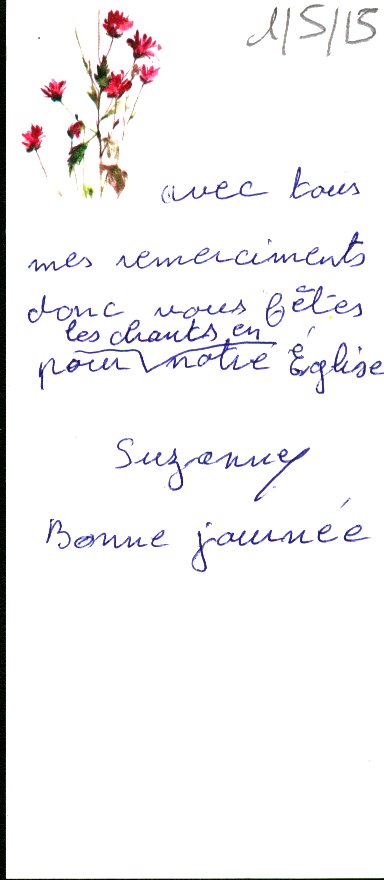 1/5/15
avec tous
mes remerciments
donc vous fêtes
les chants en
pour notre Église
Suzanne
Bonne journée